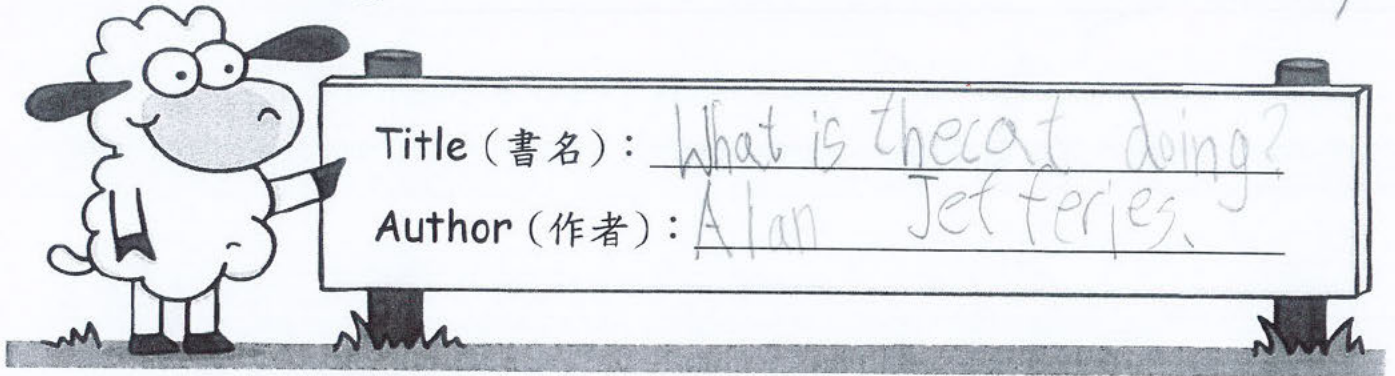 Title (書名): What is thecat doing?
Author (作者): Alan Jefferies.